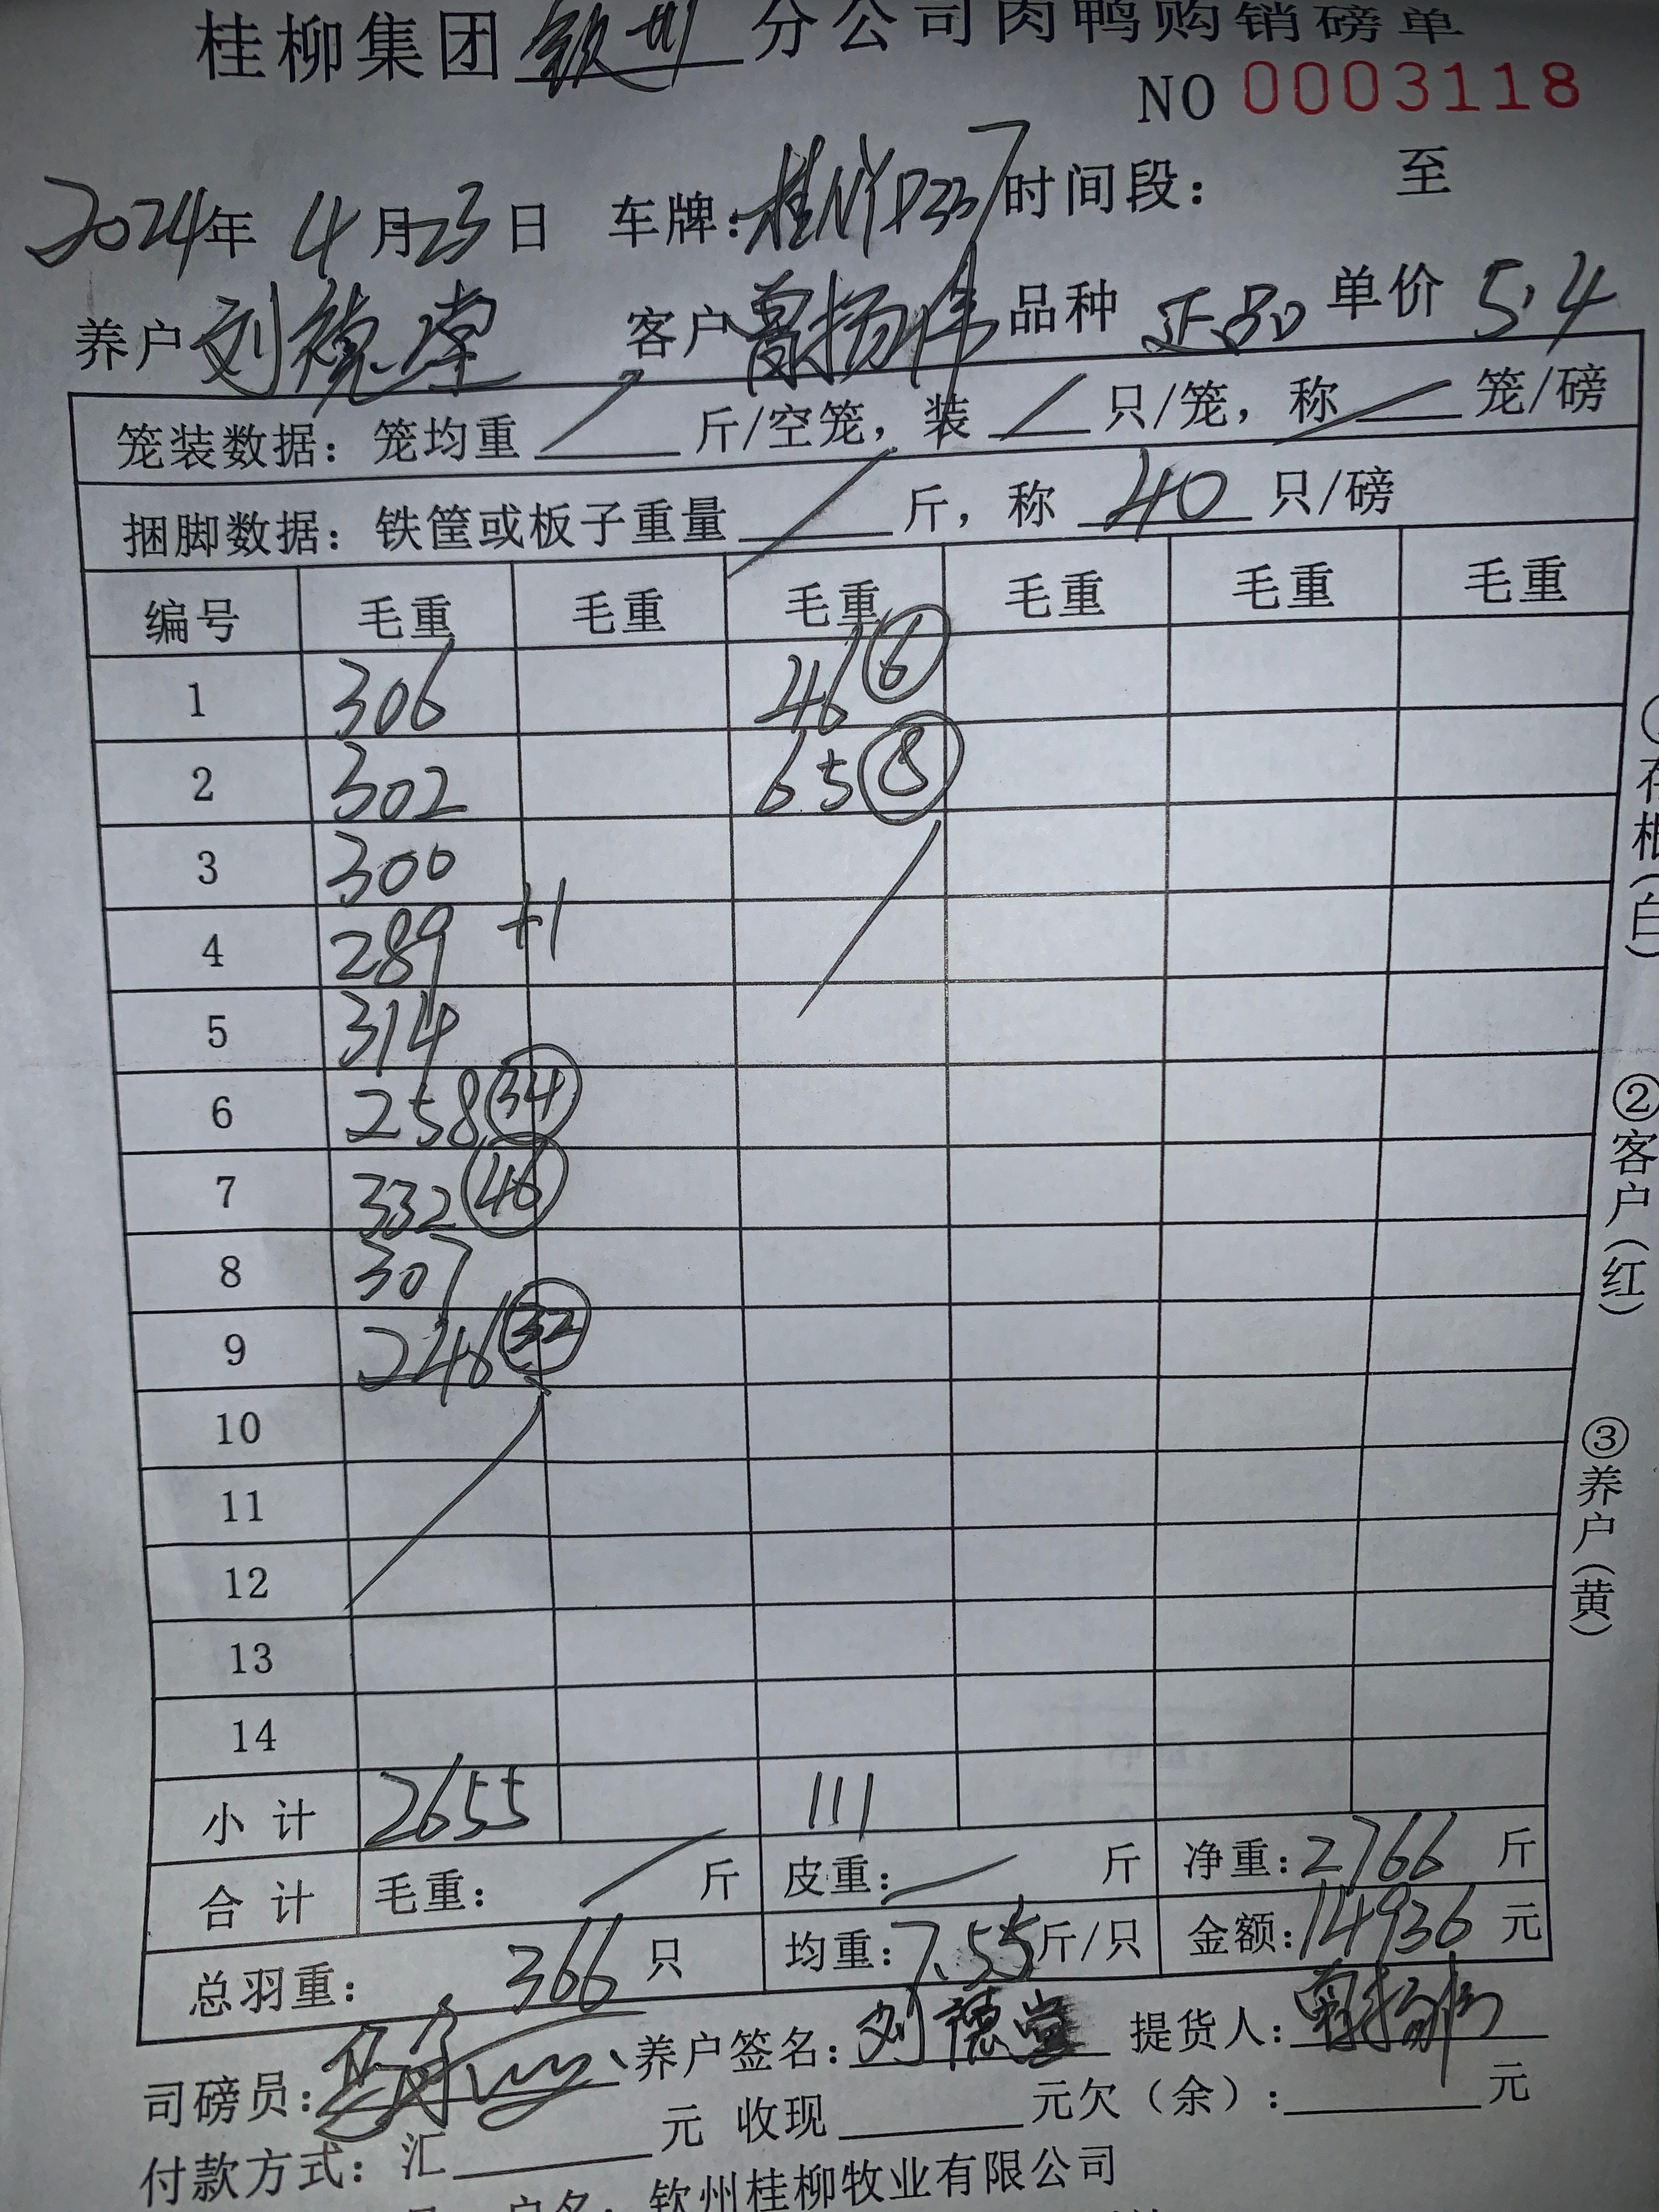 桂柳集团钦州分公司肉鸭购销磅单
NO 0003118
2024年 4月23日 车牌: 时间段: 至
养户 刘德堂 客户 曾扬伟 品种 正品 单价 5.4
笼装数据: 笼均重 斤/空笼, 装 只/笼, 称 笼/磅
捆脚数据: 铁筐或板子重量 斤, 称 40 只/磅
编号 毛重 毛重 毛重 毛重 毛重 毛重
1 306 46 ⑥
2 302 65 ⑧
3 300
4 289 +1
5 314
6 258 ㉞
7 332
8 307
9 246 ㉜
10
11
12
13
14
小计 2655 111
合计 毛重: 斤 皮重: 斤 净重: 2766 斤
总羽重: 366 只 均重: 7.55 斤/只 金额: 14936 元
司磅员: 养户签名: 刘德堂 提货人: 曾扬伟
付款方式: 汇 元 收现 元欠(余): 元
户名: 钦州桂柳牧业有限公司
存根(白)
②客户(红)
③养户(黄)